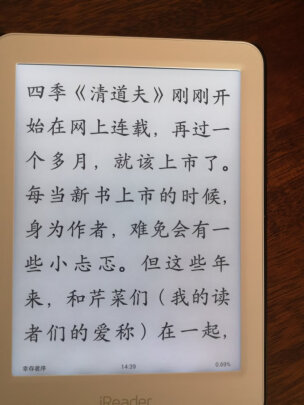 四季《清道夫》刚刚开
始在网上连载，再过一
个多月，就该上市了。
每当新书上市的时候，
身为作者，难免会有一
些小忐忑。但这些年
来，和芹菜们（我的读
者们的爱称）在一起，
幸存者序 14:39 0.69%
iReader